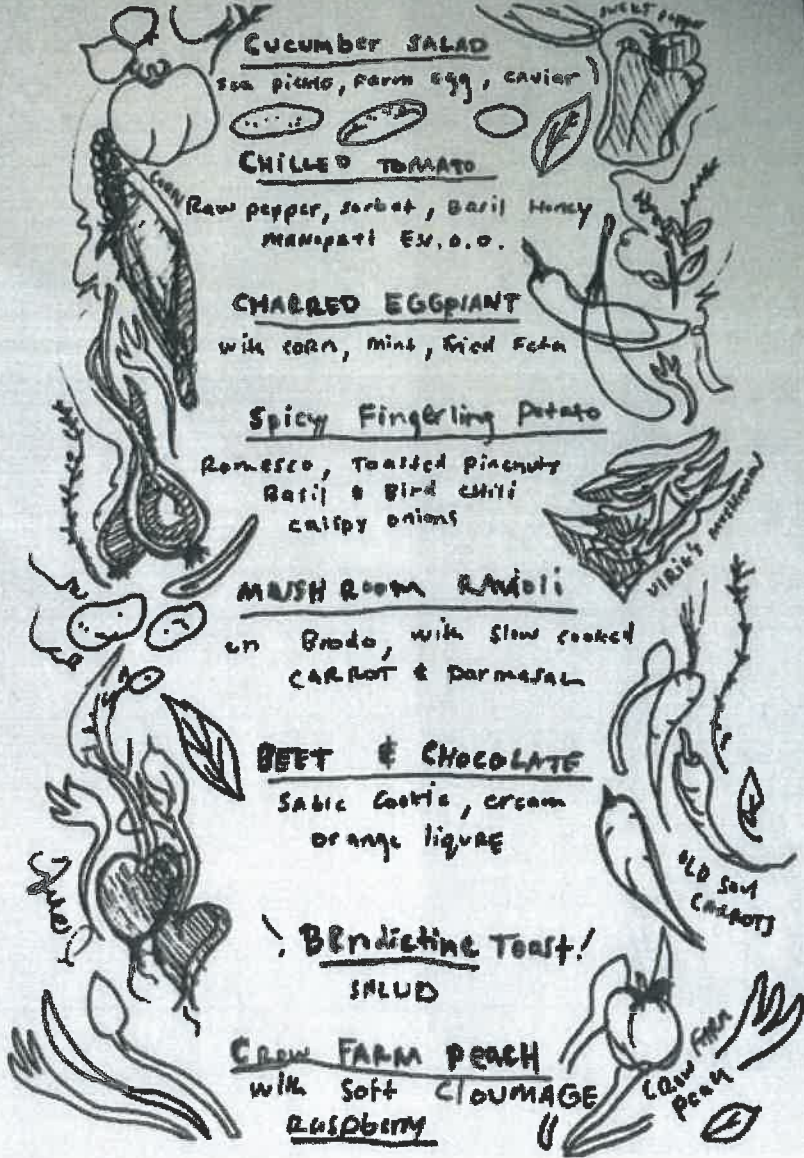 sweet pepper
Cucumber SALAD
sea pickle, farm egg, caviar
CHILLED TOMATO
CORN
Raw pepper, sorbet, Basil Honey
E.V.O.O.
CHARRED EGGPlANT
with corn, mint, fried Feta
Spicy Fingerling Potato
Romesco, Toasted pinenuts
Basil & Bird chili
crispy onions
mushrooms
MUSHROOM RAVIOLI
en Brodo, with slow cooked
CARROT & parmasan
BEET & CHOCOLATE
Sable Cookie, cream
orange liqure
OLD Soul
CARROTS
! Bendictine Toast!
SALUD
Crow FARM peach
with Soft CloUMAGE
Raspberry
CROW FARM
peach